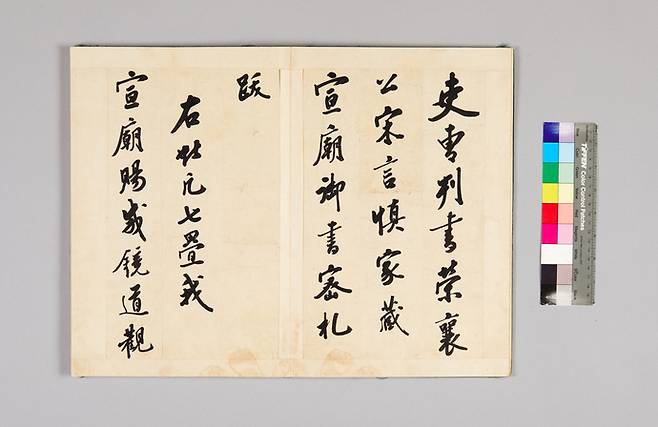 吏曹判書榮襄
公宋言愼家藏
宣廟御書密札
跋
右此凡七疊我
宣廟賜咸鏡道觀
TIFFEN Color Control Patches